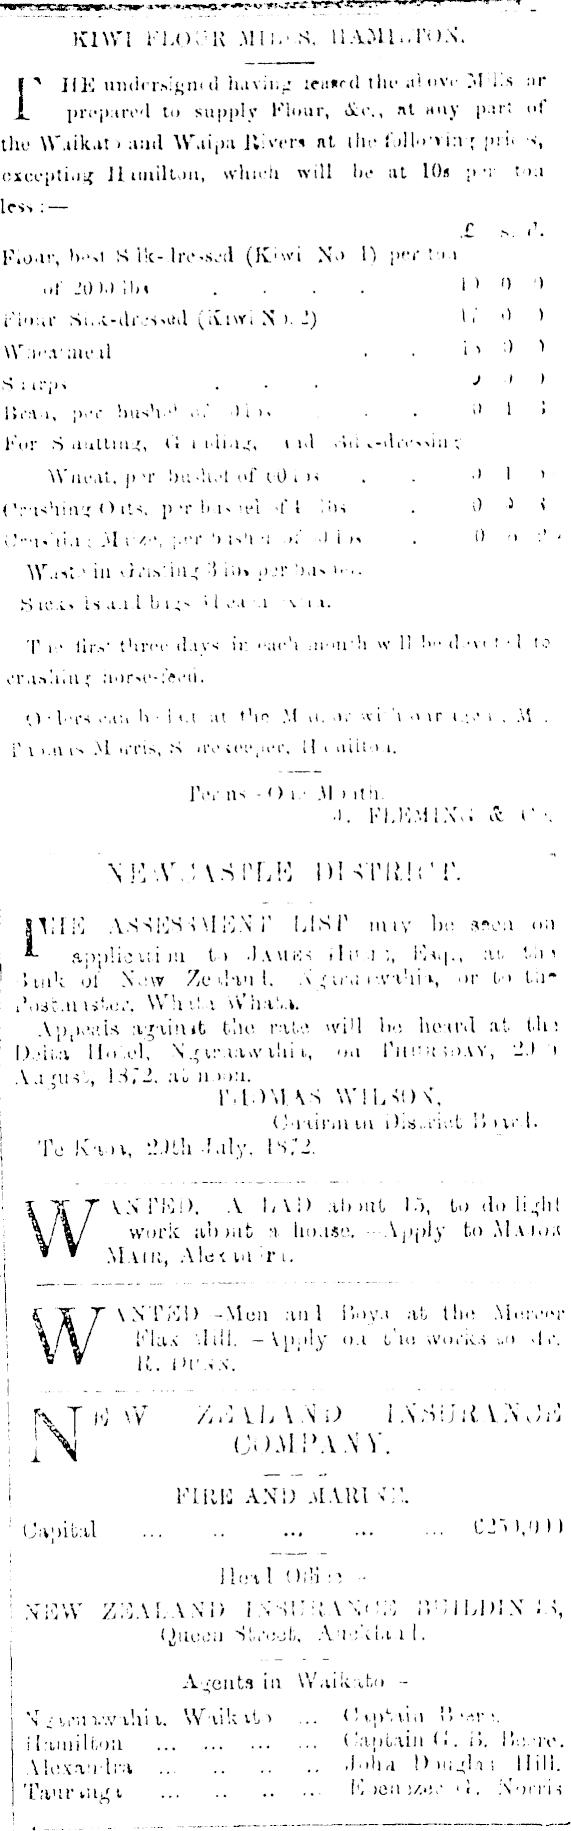 KIWI FLOUR MILLS, HAMILTON.
THE undersigned having leased the above Mills are
prepared to supply Flour, &c., at any part of
the Waikato and Waipa Rivers at the following prices,
excepting Hamilton, which will be at 10s per ton
less:—
£ s. d.
Flour, best Silk-dressed (Kiwi No 1) per ton
of 2000 lbs . . . . 0 0
Flour Silk-dressed (Kiwi No. 2) 17 0 0
Wheatmeal . . 0 0
Sharps . . . 0 0
Bran, per bushel of lbs . . . 0 1
For Smutting, Grinding, and Silk-dressing
Wheat, per bushel of 60 lbs . . 0 1
Crushing Oats, per bushel of lbs . 0
Crushing Maize, per bushel of lbs . 0
Waste in Gristing 3 lbs per bushel.
Sacks 1s and bags each extra.
The first three days in each month will be devoted to
crushing horse-feed.
Orders can be left at the Mill, or with our agent, Mr.
Thomas Morris, Storekeeper, Hamilton.
Terms—One Month.
J. FLEMING & Co.
NEWCASTLE DISTRICT.
THE ASSESSMENT LIST may be seen on
application to JAMES Esq., at the
Bank of New Zealand, Ngaruawahia, or to the
Postmaster, Whata Whata.
Appeals against the rate will be heard at the
Delta Hotel, Ngaruawahia, on THURSDAY, 29th
August, 1872, at noon.
THOMAS WILSON,
Chairman District Board.
Te Kapa, 29th July, 1872.
WANTED, A LAD about 15, to do light
work about a house.—Apply to MAJOR
MAIR, Alexandra.
WANTED—Men and Boys at the Mercer
Flax Mill.—Apply on the works to Mr.
R. DUNN.
NEW ZEALAND INSURANCE
COMPANY.
FIRE AND MARINE.
Capital ... .. ... ... ... £250,000
Head Office—
NEW ZEALAND INSURANCE BUILDINGS,
Queen Street, Auckland.
Agents in Waikato—
Ngaruawahia, Waikato ... Captain Beere.
Hamilton ... ... ... ... Captain G. B. Beere.
Alexandra ... .. .. .. John Douglas Hill.
Tauranga ... .. .. ... Ebenezer G. Norris